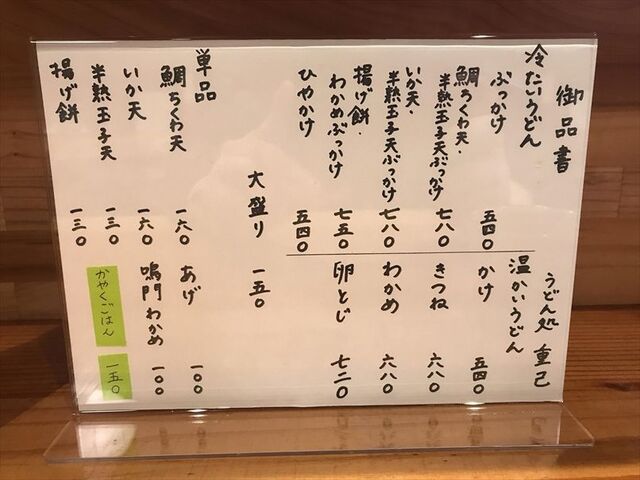 御品書
うどん処 重己
冷たいうどん
ぶっかけ 五四〇
鯛ちくわ天・
半熟玉子天ぶっかけ 七八〇
いか天・
半熟玉子天ぶっかけ 七八〇
揚げ餅・
わかめぶっかけ 七五〇
ひやかけ 五四〇
温かいうどん
かけ 五四〇
きつね 六八〇
わかめ 六八〇
卵とじ 七二〇
大盛り 一五〇
単品
鯛ちくわ天 一六〇
いか天 一六〇
半熟玉子天 一三〇
揚げ餅 一三〇
あげ 一〇〇
鳴門わかめ 一〇〇
かやくごはん 一五〇